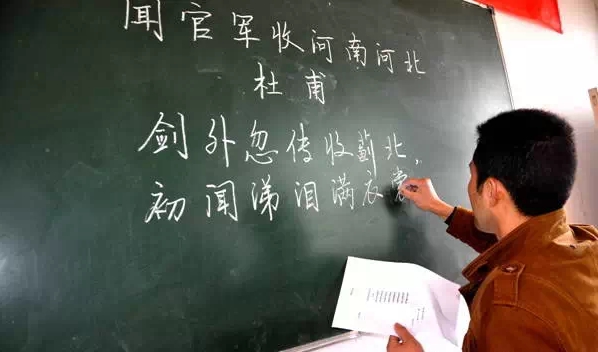 闻官军收河南河北
杜甫
剑外忽传收蓟北，
初闻涕泪满衣裳